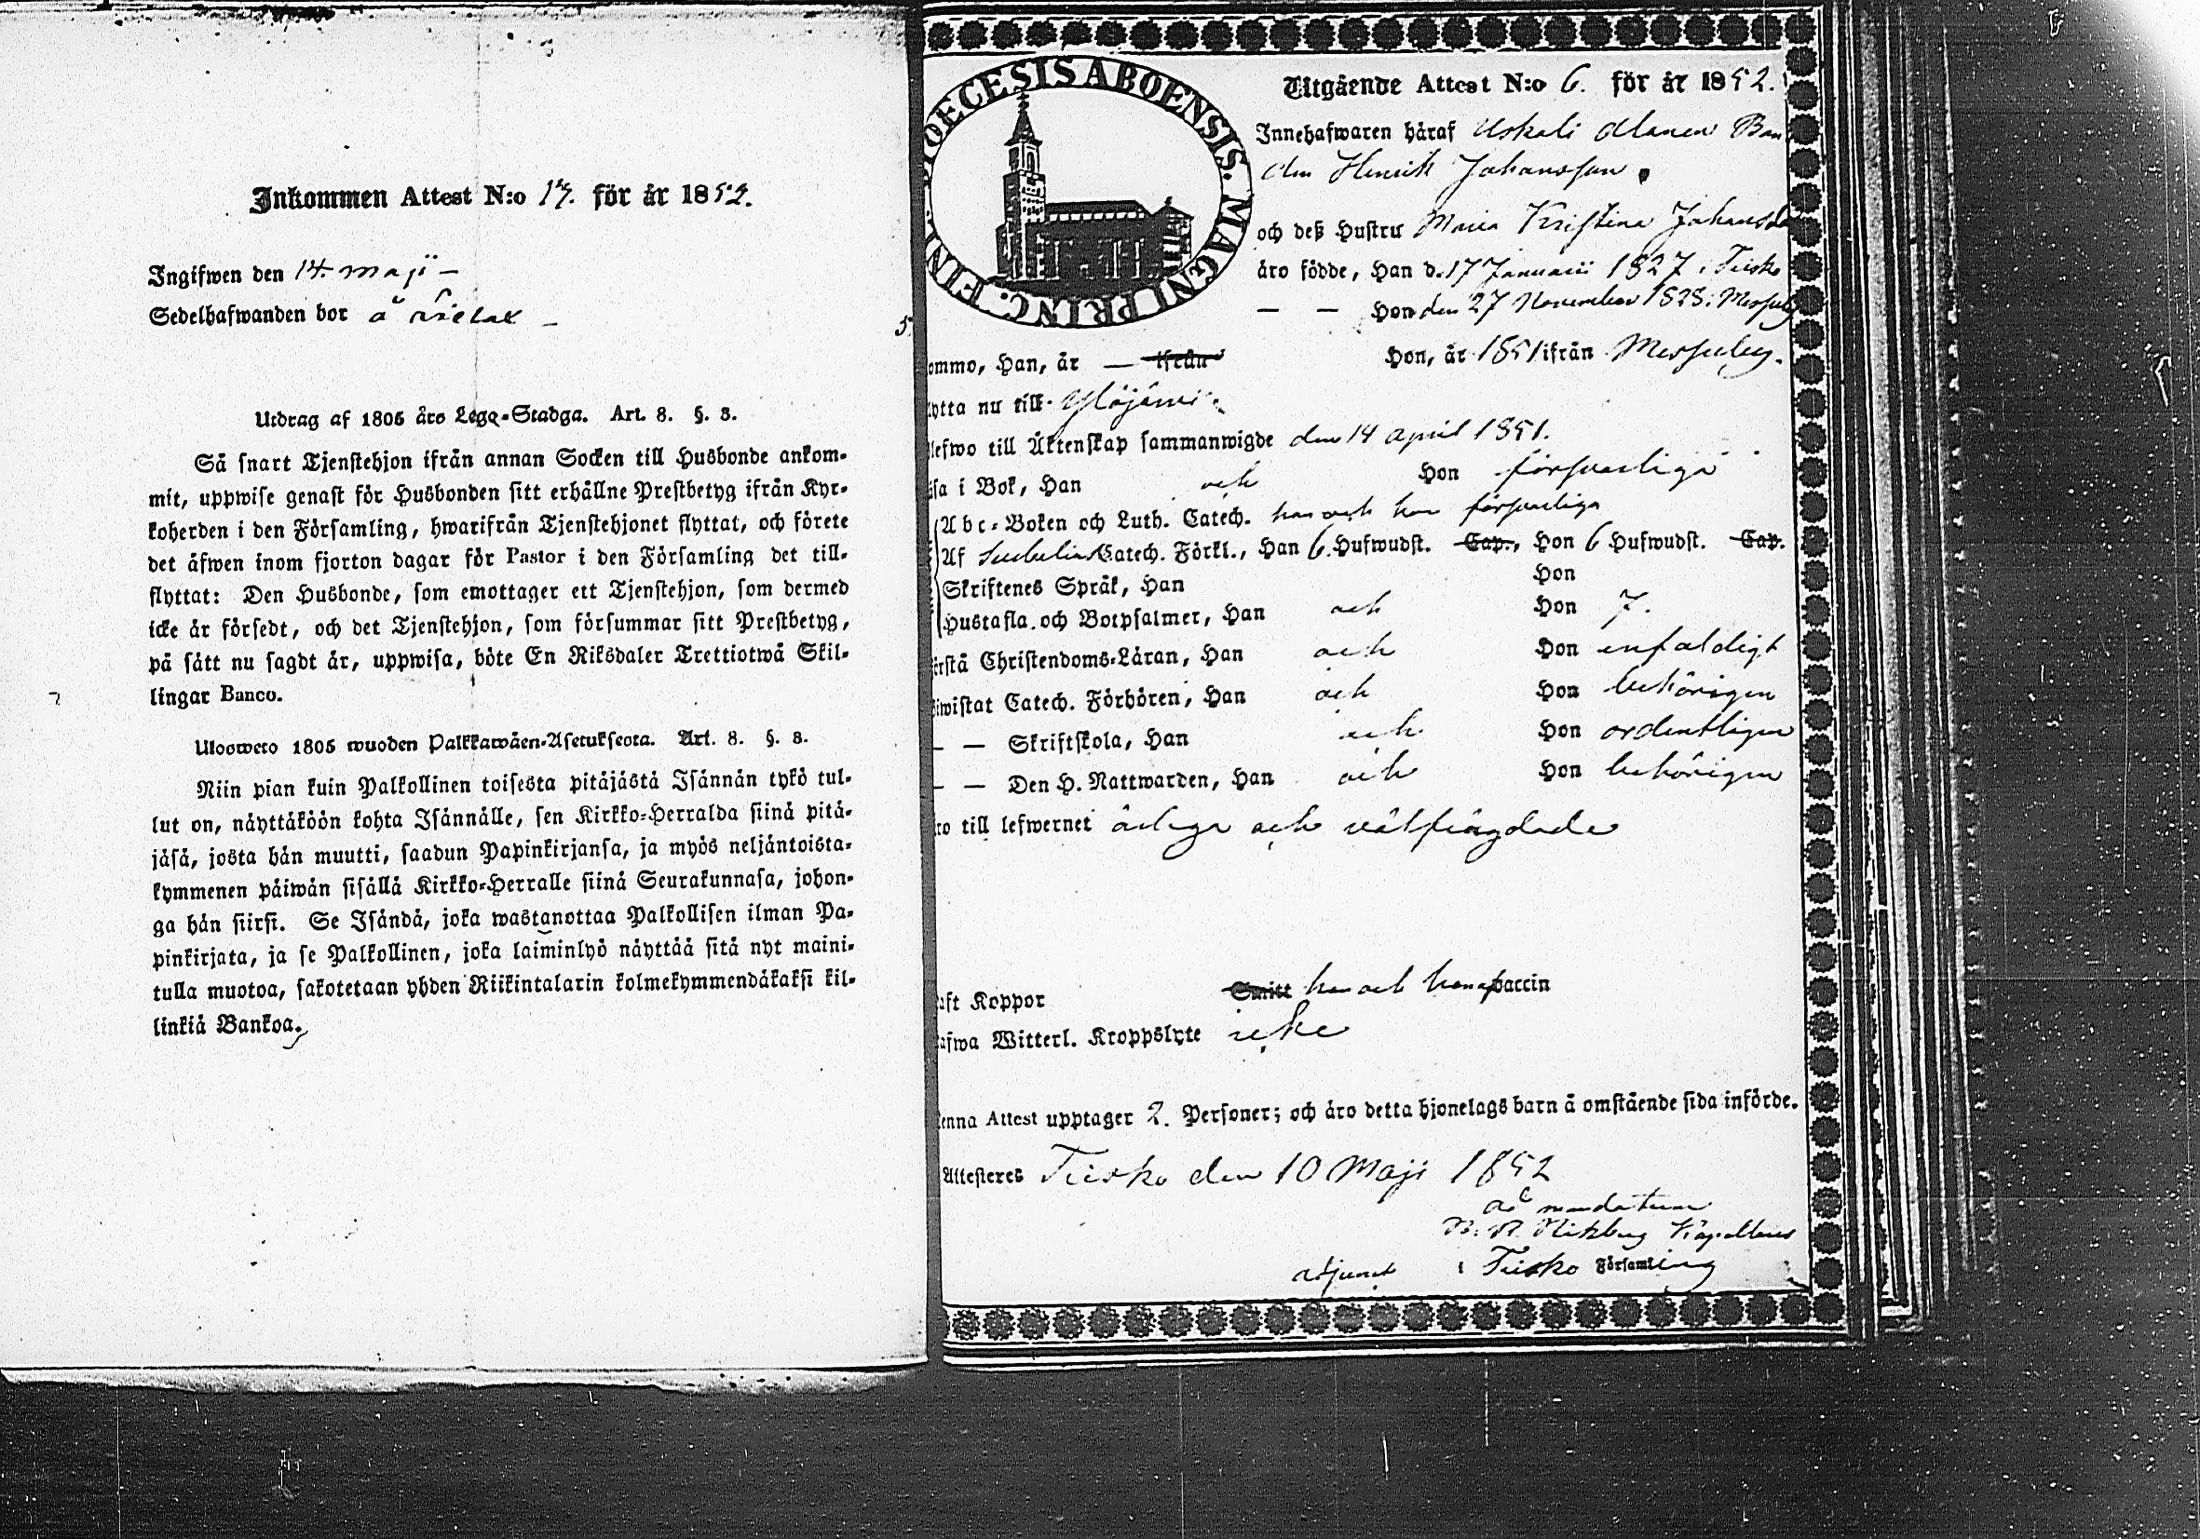 Inkommen Attest N:o 17. för år 1852.
Ingifwen den 14. maji –
Sedelhafwanden bor å
Utdrag af 1805 års Lego-Stadga. Art. 8. §. 3.
Så snart Tjenstehjon ifrån annan Socken till Husbonde ankom-
mit, uppwise genast för Husbonden sitt erhållne Prestbetyg ifrån Kyr-
koherden i den Församling, hwarifrån Tjenstehjonet flyttat, och förete
det äfwen inom fjorton dagar för Pastor i den Församling det till-
flyttat: Den Husbonde, som emottager ett Tjenstehjon, som dermed
icke är försedt, och det Tjenstehjon, som försummar sitt Prestbetyg,
på sätt nu sagdt är, uppwisa, böte En Riksdaler Trettiotwå Skil-
lingar Banco.
Ulosweto 1805 wuoden Palkkawäen-Asetuksesta. Art. 8. §. 3.
Niin pian kuin Palkollinen toisesta pitäjästä Isännän tykö tul-
lut on, näyttäköön kohta Isännälle, sen Kirkko-Herralda siinä pitä-
jäsä, josta hän muutti, saadun Papinkirjansa, ja myös neljäntoista-
kymmenen päiwän sisällä Kirkko-Herralle siinä Seurakunnasa, johon-
ga hän siirsi. Se Isändä, joka wastanottaa Palkollisen ilman Pa-
pinkirjata, ja se Palkollinen, joka laiminlyö näyttää sitä nyt maini-
tulla muotoa, sakotetaan yhden Riikintalarin kolmekymmendäkaksi kil-
linkiä Bankoa.
DIOECESIS ABOENSIS. MAGNI PRINC. FIN
Utgående Attest N:o 6. för år 1852.
Innehafwaren häraf Uskali Bon
den Henrik Johansson.
och deß Hustru Maria Kristina Johansdr
äro födde, Han d. 17 Januarii 1827 i Teisko
— — Hon den 27 November 1828 i Messuby
ommo, Han, år — ifrån Hon, år 1851 ifrån Messuby.
lytta nu till Ylöjärvi
lefwo till Äktenskap sammanwigde den 14 april 1851.
sa i Bok, Han och Hon försvarliga
Abc-Boken och Luth. Catech. han och hon försvarliga
Af Catech. Förkl., Han 6 Hufwudst. Cap., Hon 6 Hufwudst. Cap.
Skriftenes Språk, Han Hon
Hustafla och Botpsalmer, Han och Hon 7.
rstå Christendoms-Läran, Han och Hon enfaldigt
iwistat Catech. Förhören, Han och Hon behörigen
— — Skriftskola, Han och Hon ordentligen
— — Den H. Nattwarden, Han och Hon behörigen
ro till lefwernet ärliga och välfrägdade
aft Koppor Smitt han och hon vaccin
afwa Witterl. Kroppslyte icke
enna Attest upptager 2. Personer; och äro detta hjonelags barn å omstående sida införde.
Attesteres Teisko den 10 Maji 1852
ad mandatum
Kapellans
adjunct i Teisko Församling